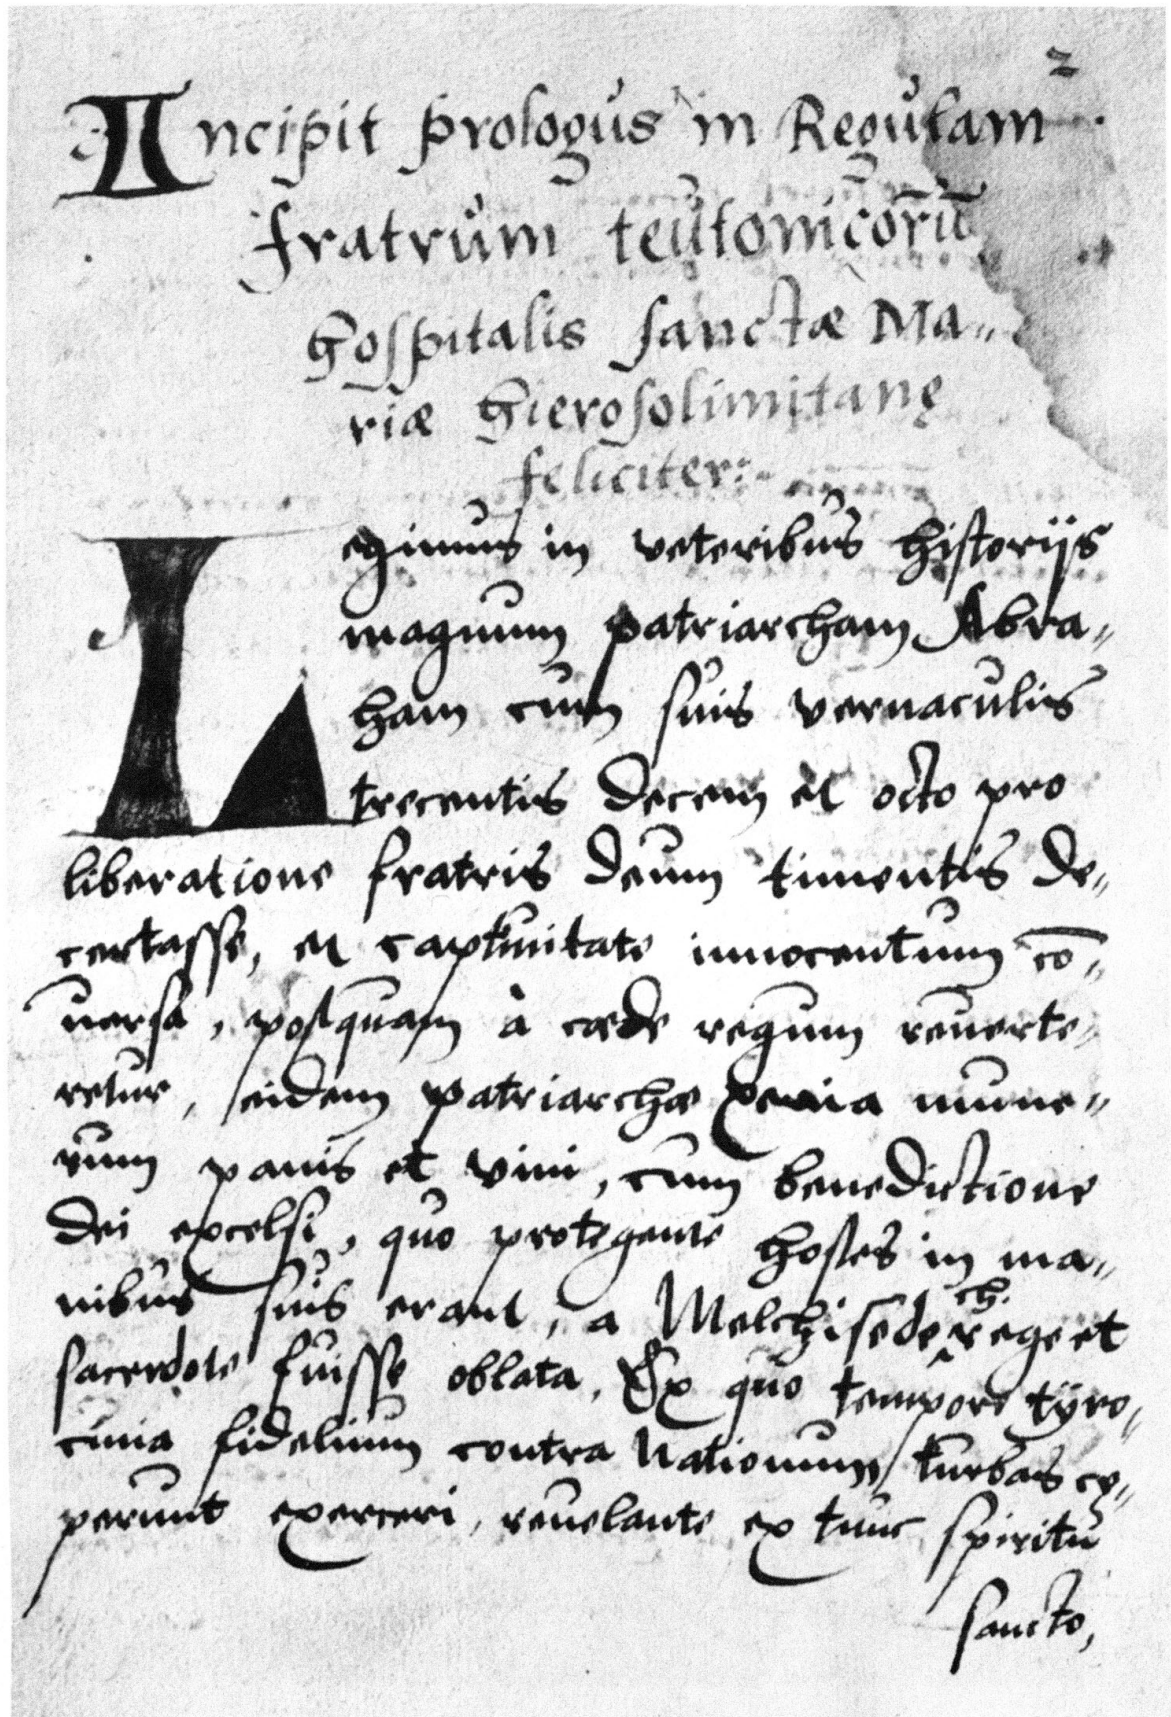 2
Incipit prologus in Regulam
fratrum teutonicorū
Hospitalis sanctæ Ma„
riæ Hierosolimitanę
feliciter:
Legimus in veteribus historijs
magnum patriarcham Abra„
ham cum suis vernaculis
trecentis decem et octo pro
liberatione fratris deum timentis de„
certasse, et captiuitate innocentum cō„
uersa, postquam à cæde regum reuerte„
retur, eidem patriarchæ xenia mune„
rum panis et vini, cum benedictione
dei excelsi, quo protegente hostes in ma„
nibus suis erant, a Melchisedech. rege et
sacerdote fuisse oblata, Ex quo tempore tÿro„
cinia fidelium contra Nationum turbas cę„
perunt exerceri, reuelante ex tunc spiritu
sancto,